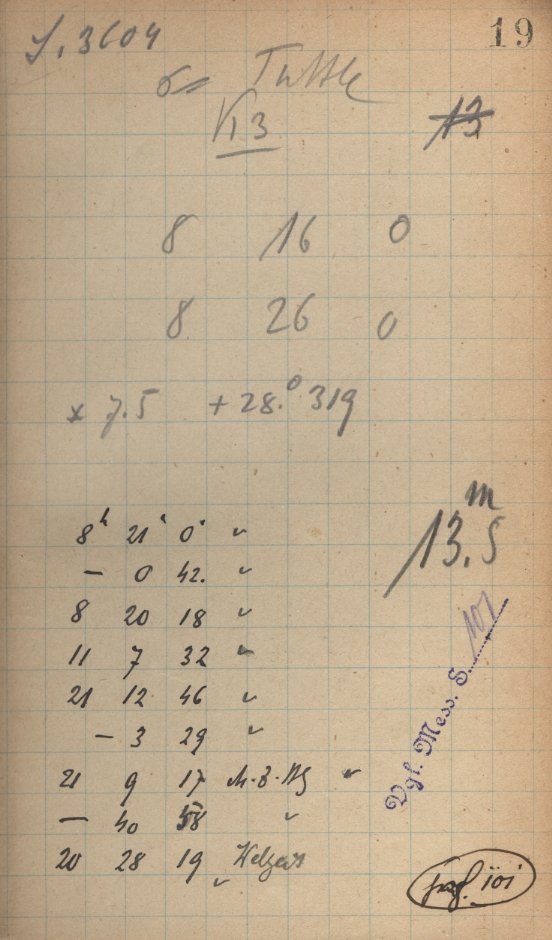 J. 3604
19
Tuttle
VI 3
13
8 16 0
8 26 0
* 7.5 + 28.° 319
13.5 m
8h 21' 0' ✓
– 0 42. ✓
8 20 18 ✓
11 7 32 ✓
21 12 46 ✓
– 3 29 ✓
21 9 17 M. Z. ✓
– 40 58 ✓
20 28 19
✓
Vgl. Mess. S. 101
101